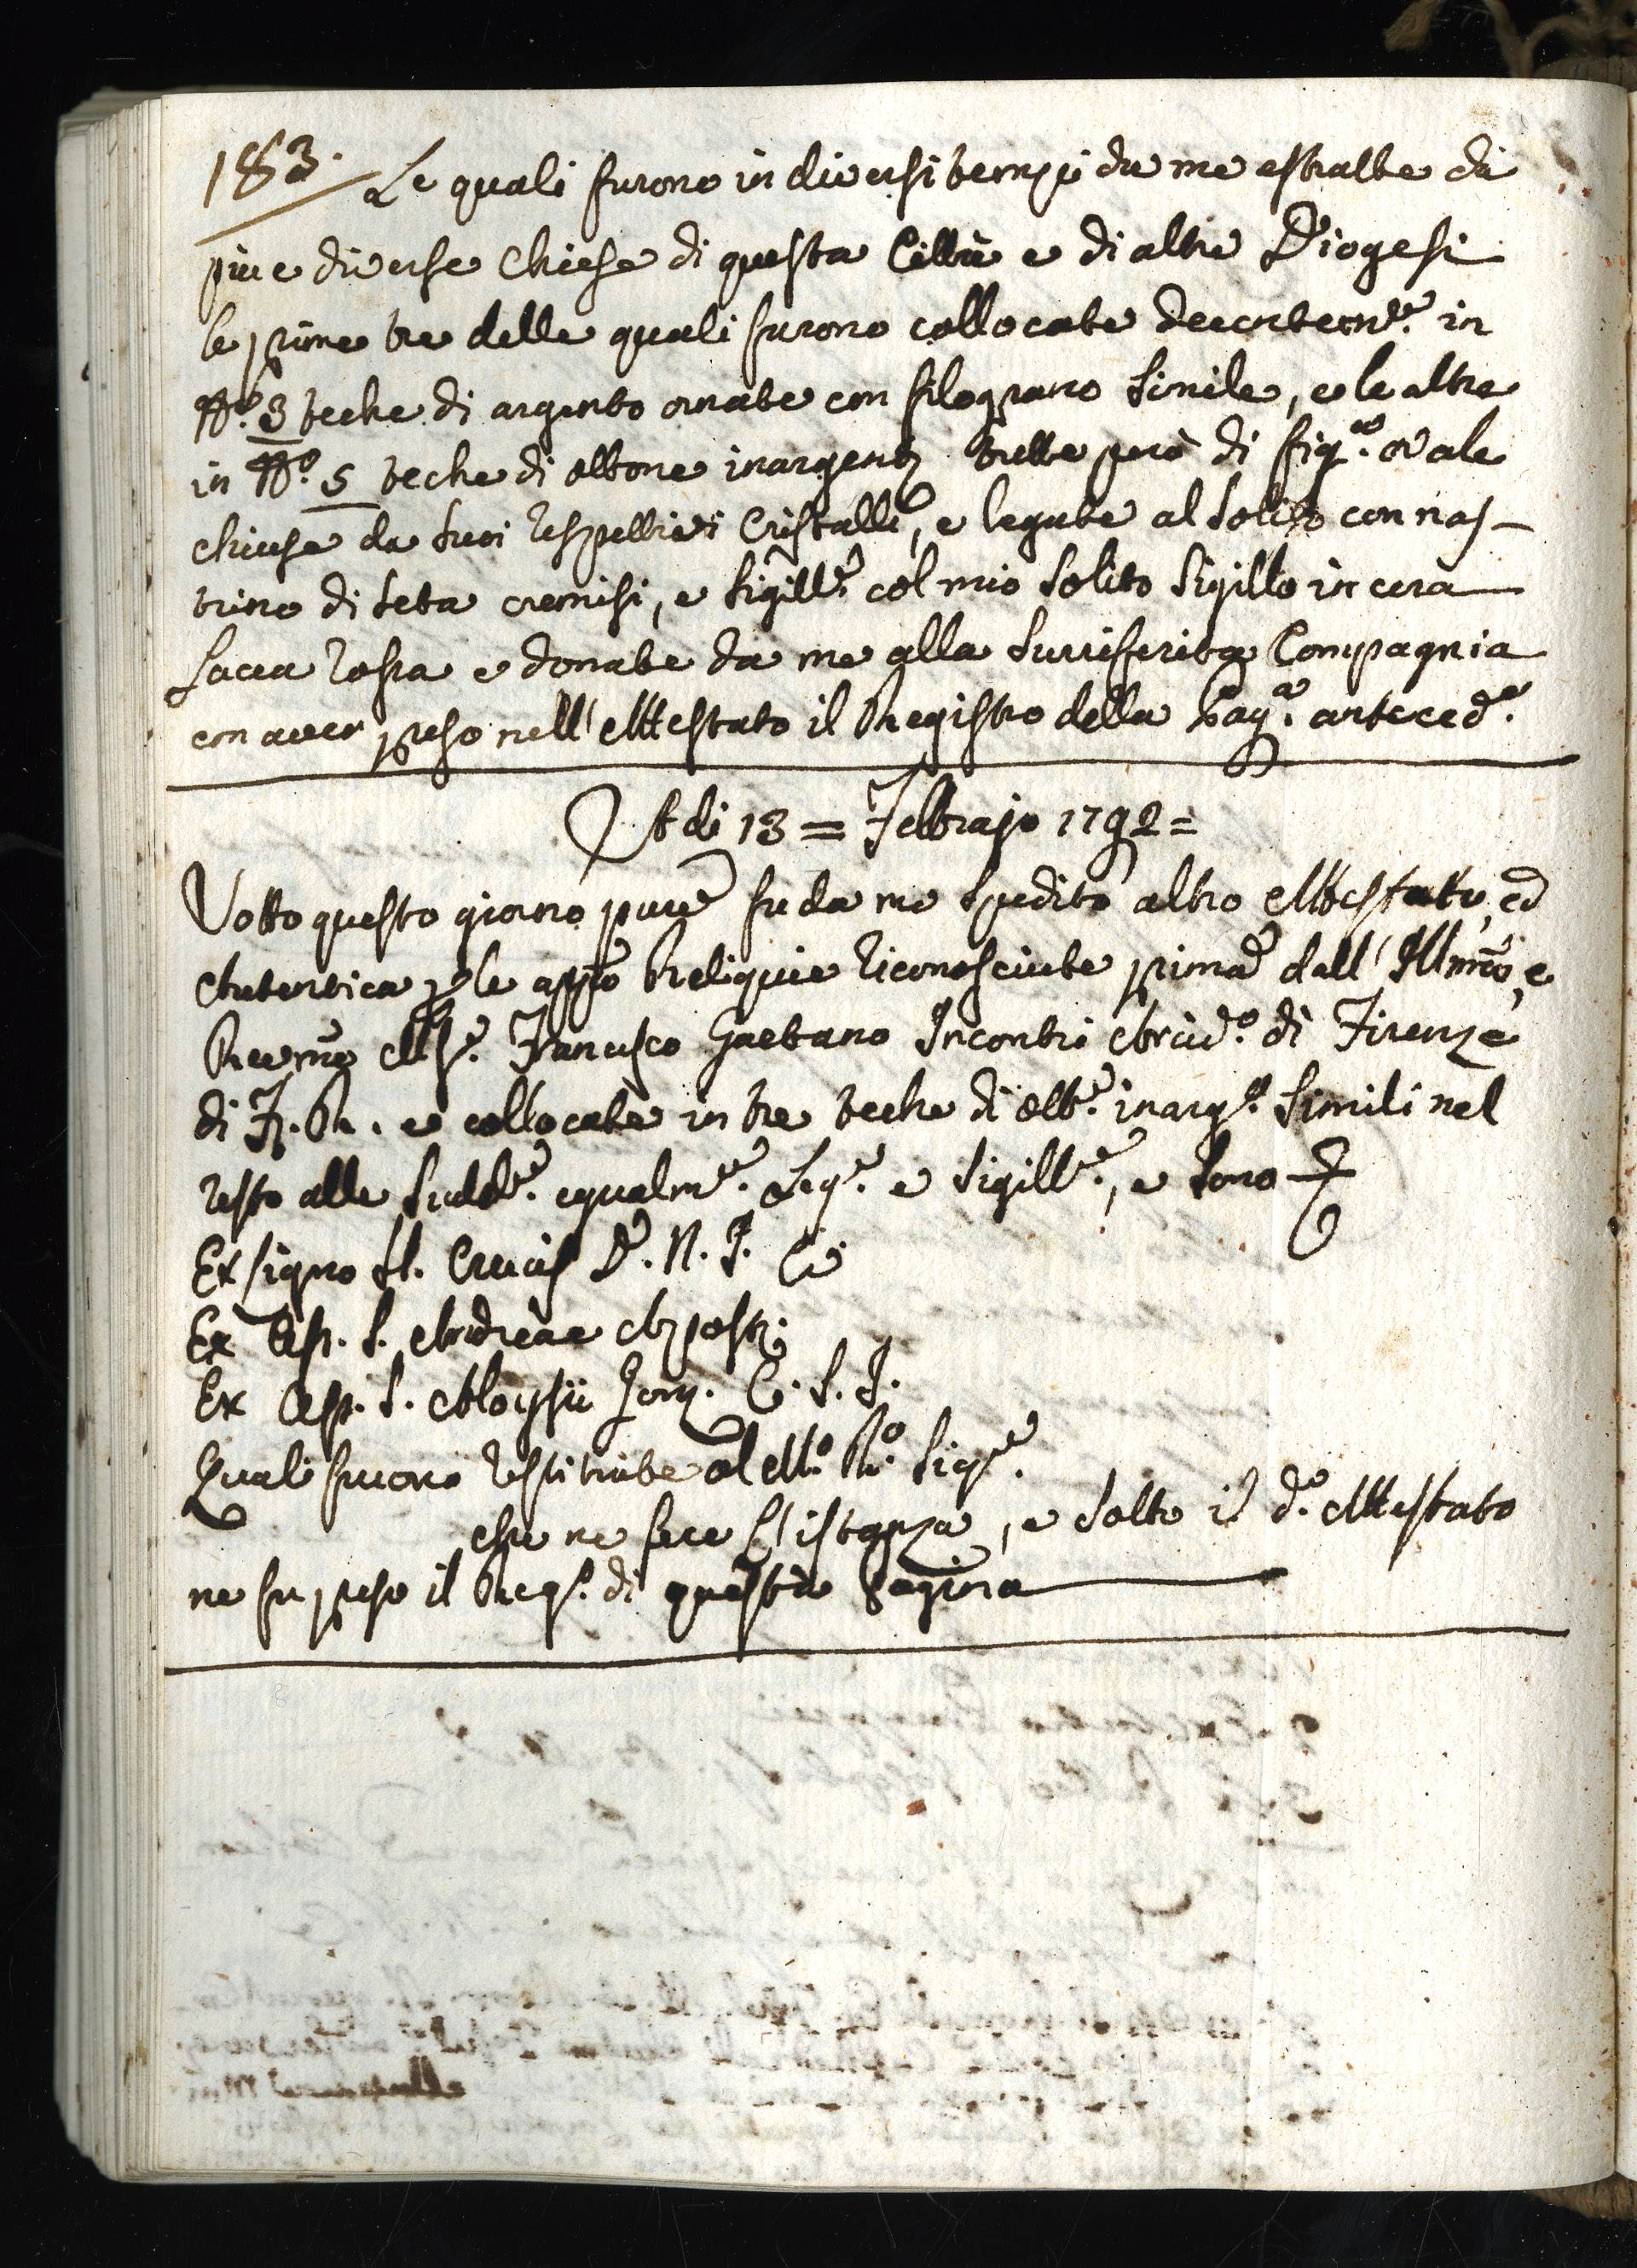 183. Le quali furono in diversi tempi da me estratte da
piu e diverse Chiese di questa Città e di altre Diogesi
le prime tre delle quali furono collocate decentem.e in
N.o 3 teche di argento ornate con filograno simile, e le altre
in N.o 5 teche di ottone inargent. tutte però di fig.a ovale
chiuse da suoi respettivi Cristalli, e legate al solito con nas-
trino di seta cremisi, e sigill.e col mio solito Sigillo in cera
Lacca rossa e donate da me alla surriferita Compagnia
con aver preso nell'Attestato il Registro della Pag.a anteced.e
A di 13 = Febbrajo 1792 =
Sotto questo giorno pure fu da me spedito altro Attestato, ed
Autentica p le appo Reliquie riconosciute prima dall'Illmo, e
Revmo M.e Francesco Gaetano Incontri Arcid.o di Firenze
di F. R. e collocate in tre teche di ott.e inarg.e simili nel
resto alle sudd.e egualm.e Leg.e e sigill.e, e sono
Ex signo SS. Crucis D. N. J. C.
Ex Oss. S. Andreae Apost.
Ex Oss. S. Aloysii Gonz. C. S. J.
Quali furono restituite al M.o R.o Sig.e
che ne fece l'istanza, e sotto il d.o Attestato
ne fu preso il Reg.o di questa Pagina